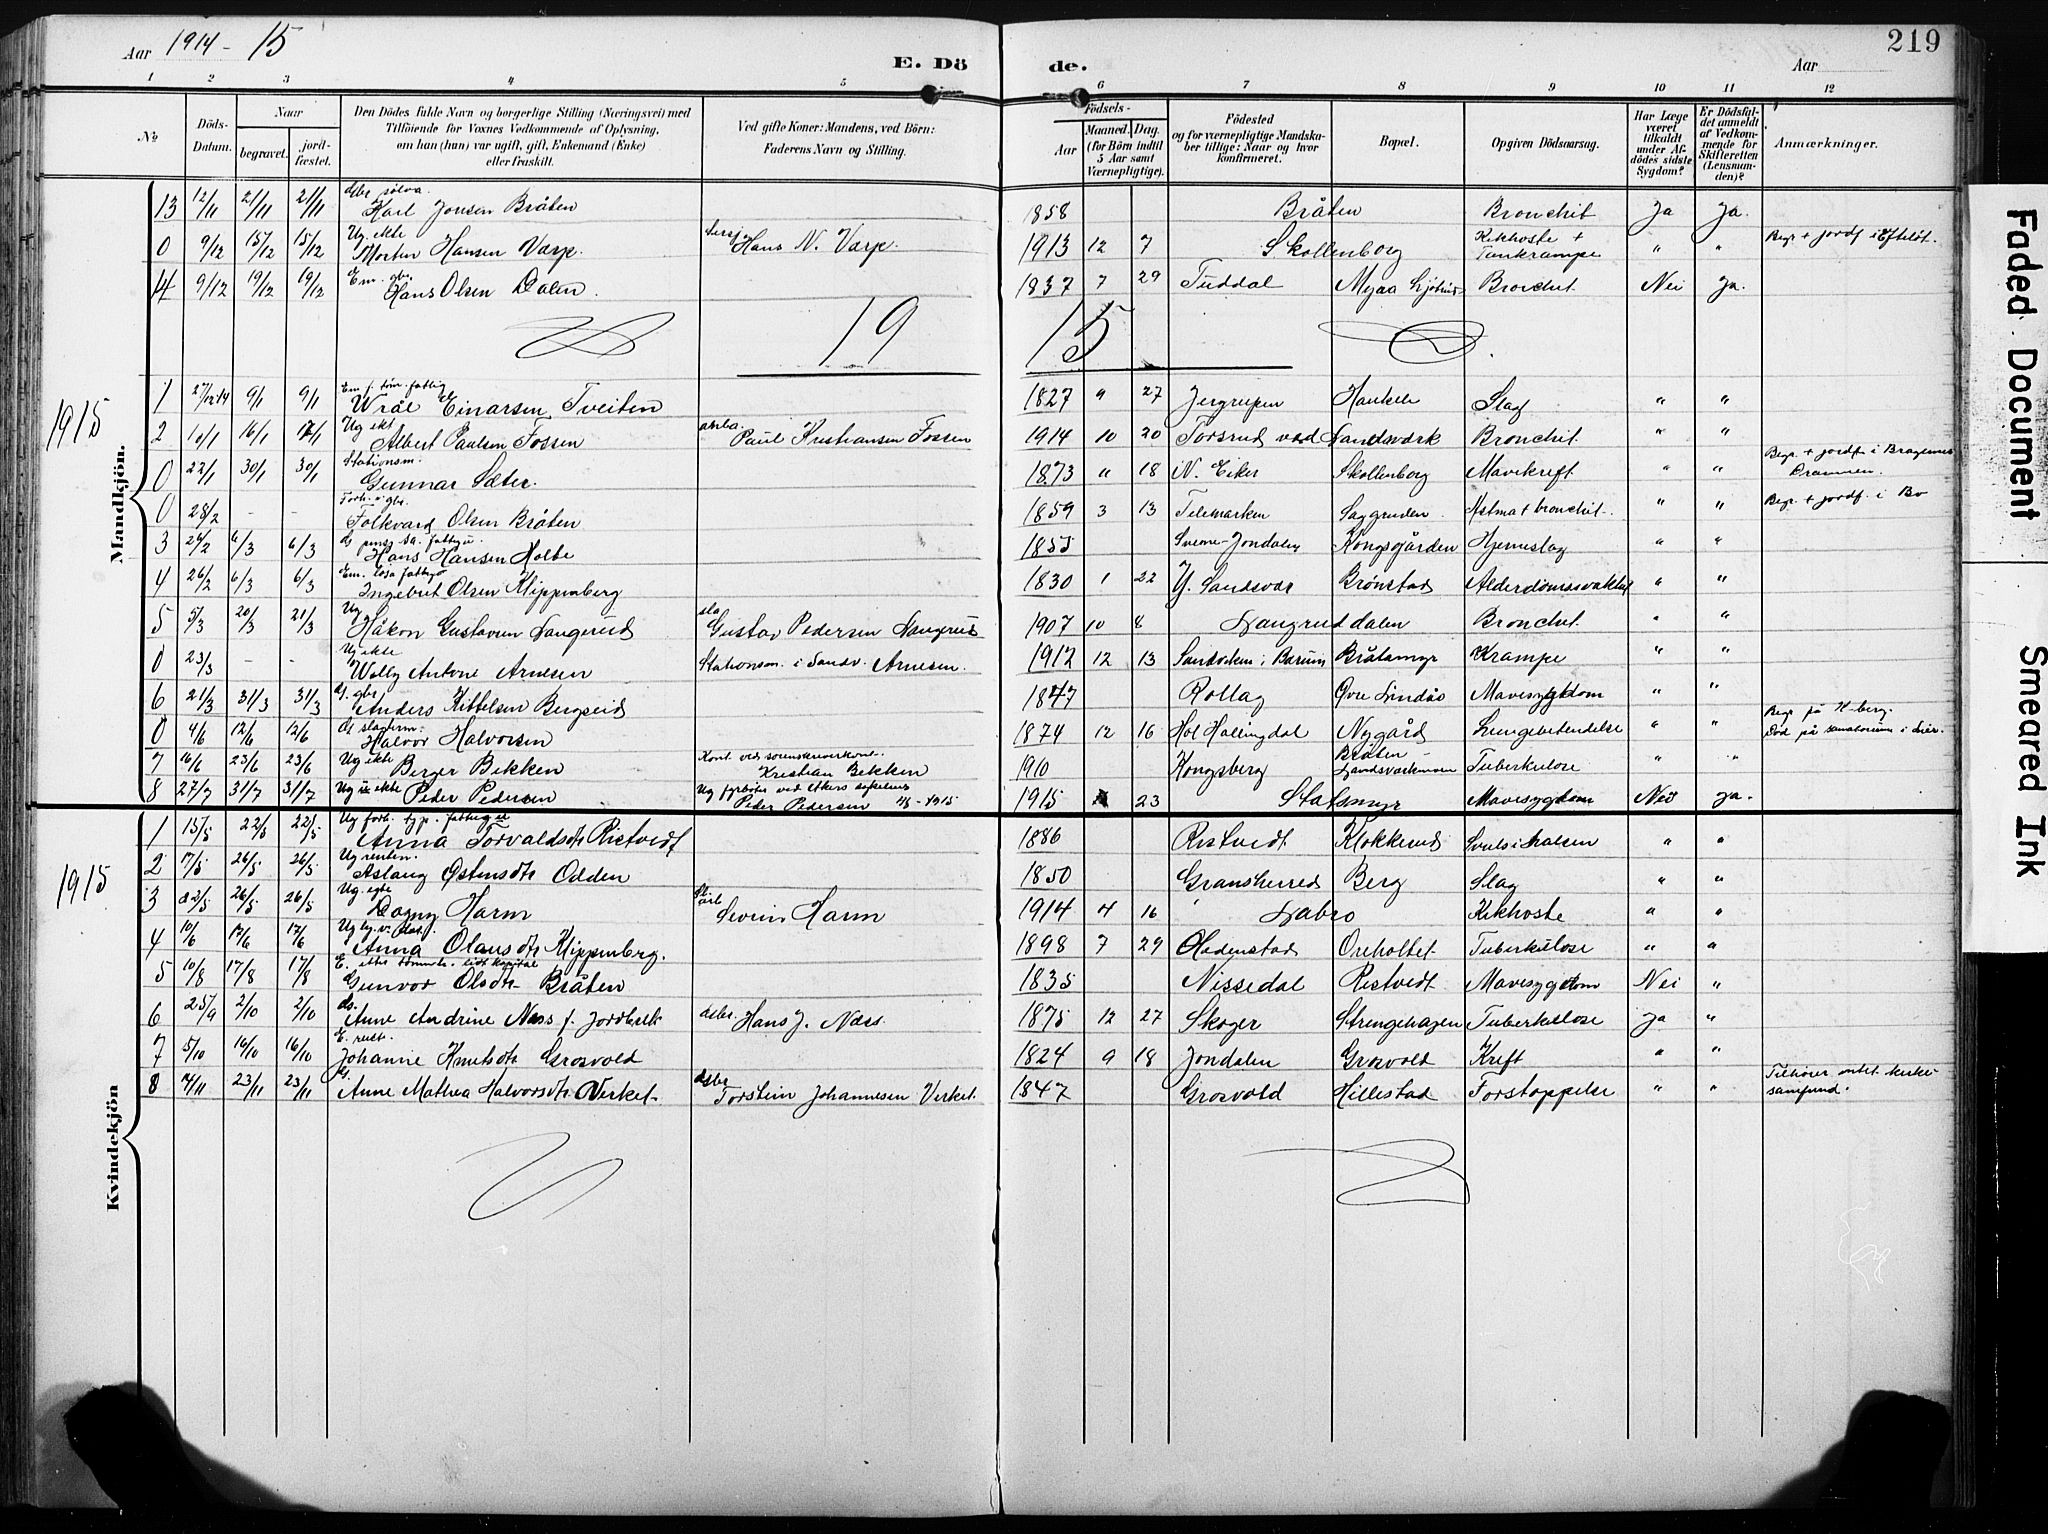 Aar 1914-15
E. Dö
de.
Aar
219
1 2 3 4 5 6 7 8 9 10 11 12
No
Döds-Datum.
Naar
begravet.
jordfæstet.
Den Dödes fulde Navn og borgerlige Stilling (Næringsvei) med
Tilföiende for Voxnes Vedkommende af Oplysning,
om han (hun) var ugift, gift, Enkemand (Enke)
eller fraskilt.
Ved gifte Koner: Mandens, ved Börn:
Faderens Navn og Stilling.
Födsels-
Aar
Maaned. Dag.
(for Börn indtil
5 Aar samt
Værnepligtige).
Födested
og for værnepligtige Mandska-
ber tillige: Naar og hvor
konfirmeret.
Bopæl.
Opgiven Dödsaarsag.
Har Læge
været
tilkaldt
under Af-
dödes sidste
Sygdom?
Er Dödsfal-
det anmeldt
af Vedkom-
mende for
Skifteretten
(Lensman-
den)?
Anmærkninger.
Mandkjön.
13 12/11 21/11 21/11 Karl Jonsen Bråten 1858 Bråten Bronchit Ja Ja.
0 9/12 15/12 15/12 Ug. ekte Morten Hansen Varp Hans N. Varp. 1913 12 7 Skollenborg Kikhoste + Tankrampe " " Begr + jordf i Efteløt.
14 9/12 19/12 19/12 Em. gbr. Hans Olsen Dalen. 1837 7 29 Tuddal Bronchit Nei Ja.
19 15
1915
1 27/12 14 9/1 9/1 Em f. tøm. fattig Wråle Einarsen Tveiten 1827 9 27 Jerpegrupen Haukeli Slag " "
2 10/1 16/1 17/1 Ug ekt Albert Paulsen Fossen Paul Kristiansen Fossen 1914 10 20 Torsrud ved Landsværk Bronchit " "
0 22/1 30/1 30/1 Stationsm. Gunnar Sæter. 1873 " 18 N. Eiker Skollenborg Mavekreft " " Begr + jordf i Bragernes Drammen.
0 28/2 - - Forh. v. gbr. Folkvard Olsen Bråten 1859 3 13 Telemarken Saggrenden Astma + bronchit. " " Begr + jordf. i Bø
3 26/2 6/3 6/3 Hans Hansen Holte 1853 Svene-Jondalen Kongsgården Hjerneslag " "
4 26/2 6/3 6/3 Ingebret Olsen Klippenberg 1830 1 22 Y. Sandsvær Brønstad Alderdomssvakhet " "
5 5/3 20/3 21/3 Ug Håkon Gustavsen Langerud Gustav Pedersen Langerud 1907 10 8 Langruddalen Bronchit. " "
0 23/3 - - Ug ekte Willy Antone Arnesen Stationsm. i Sandv. Arnesen. 1912 12 13 Sandviken i Bærum Bråtamyr Krampe " "
6 21/3 31/3 31/3 G. gbr. Anders Kittelsen Bergseid 1847 Rollag Øvre Lindås Mavesygdom " "
0 4/6 12/6 12/6 Halvor Halvorsen 1874 12 16 Hol Hallingdal Nygård Lungebetendelse " " Begr på K-berg. Død på sanatorium i Lier.
7 16/6 23/6 23/6 Ug ekte Berger Bekken Kristian Bekken 1910 Kongsberg Bråten - Landsværkmoen Tuberkulose " "
8 27/7 31/7 31/7 Ug ekte Peder Pedersen Peder Pedersen - 1915 1915 23 Statsmyr Mavesygdom Nei Ja.
Kvindekjön
1915
1 15/5 22/5 22/5 Anna Torvaldsdtr Ristvedt 1886 Ristvedt Klokkerud Svulst i halsen " "
2 17/5 26/5 26/5 Ug renten. Aslaug Østensdtr Odden 1850 Gransherred Berg Slag " "
3 22/5 26/5 26/5 Ug. egte Dagny Harm Severin Harm 1914 4 16 Labro Kikhoste " "
4 10/6 17/6 17/6 Anna Olausdtr Klippenberg. 1898 7 29 Hedenstad Oreholtet Tuberkulose " "
5 10/8 17/8 17/8 E. etter tømmerh. lidt kapital Gunvor Olsdtr Bråten 1835 Nissedal Ristvedt Mavesygdom Nei "
6 25/9 2/10 2/10 Anne Andrine Næss f. Jordbrek Hans J. Næss. 1875 12 27 Skoger Strengehagen Tuberkulose Ja "
7 5/10 16/10 16/10 Johanne Knutsdtr Grosvold 1824 9 18 Jondalen Grosvold Kreft " "
8 14/11 23/11 23/11 Anne Mathea Halvorsdtr Verket. Torstein Johannesen Verket. 1847 Grosvold Hillestad Forstoppelse " " Tilhører intet kirkesamfund.
Faded Document
Smeared Ink